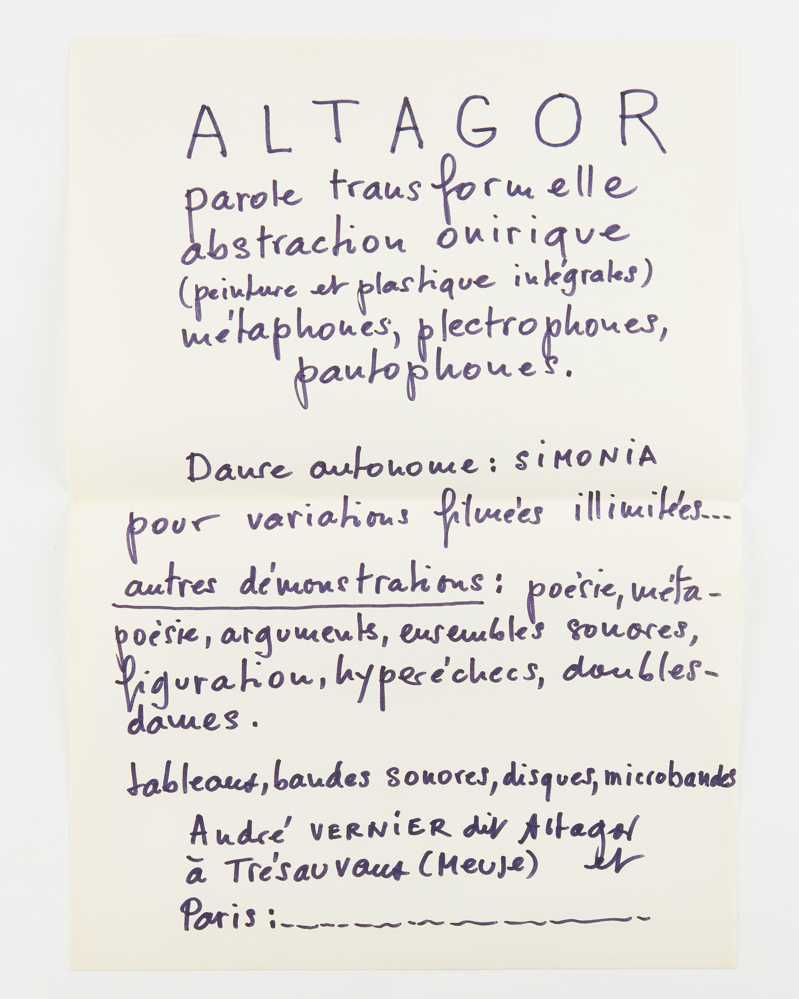 ALTAGOR
parole transformelle
abstraction onirique
(peinture et plastique intégrales)
métaphones, plectrophones,
pantophones.
Danse autonome : SiMONiA
pour variations filmées illimitées...
autres démonstrations : poésie, méta-
poésie, arguments, ensembles sonores,
figuration, hyperéchecs, doubles-
dames.
tableaux, bandes sonores, disques, microbandes
André VERNiER dit Altagor
à Trésauvaux (Meuse) et
Paris :